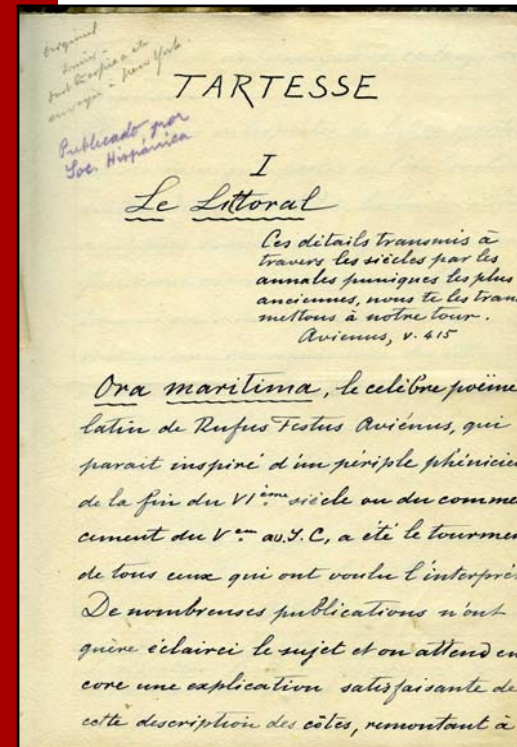 original
dont la copie a été
envoyée à New York.
Publicado por
Soc. Hispánica
TARTESSE
I
Le Littoral
Ces détails transmis à
travers les siècles par les
annales puniques les plus
anciennes, nous te les trans
mettons à notre tour.
Avienus, v. 415
Ora maritima, le celèbre poëme
latin de Rufus Festus Aviénus, qui
parait inspiré d'un périple phénicie
de la fin du VIème siècle ou du comme
cement du Vème av. J. C, a été le tourmen
de tous ceux qui ont voulu l'interpré
De nombreuses publications n'ont
guère éclairci le sujet et on attend en
core une explication satisfaisante de
cette description des côtes, remontant à